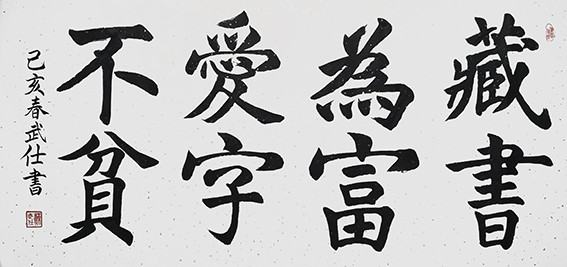 藏書
為富
愛字
不貧
己亥春武仕書